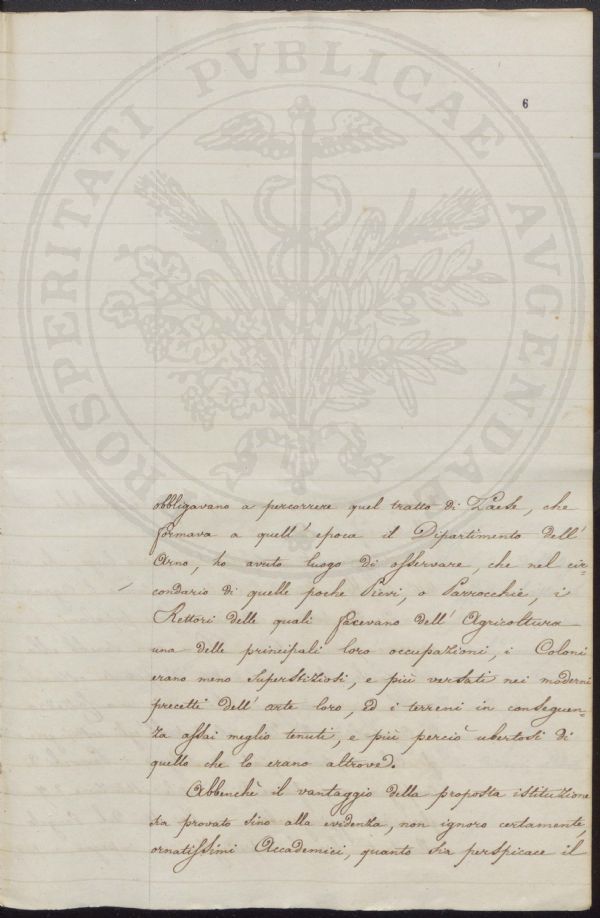 6
PROSPERITATI PVBLICAE AVGENDAE
obbligavano a percorrere quel tratto di Paese, che
formava a quell' epoca il Dipartimento dell'
Arno, ho avuto luogo di osservare, che nel cir=
condario di quelle poche Pievi, o Parrocchie, i
Rettori delle quali facevano dell' Agricoltura
una delle principali loro occupazioni, i Coloni
erano meno superstiziosi, e più versati nei moderni
precetti dell' arte loro, ed i terreni in conseguen=
za assai meglio tenuti, e più perciò ubertosi di
quello che lo erano altrove.
Abbenchè il vantaggio della proposta istituzione
sia provato sino alla evidenza, non ignoro certamente,
ornatissimi Accademici, quanto sia perspicace il